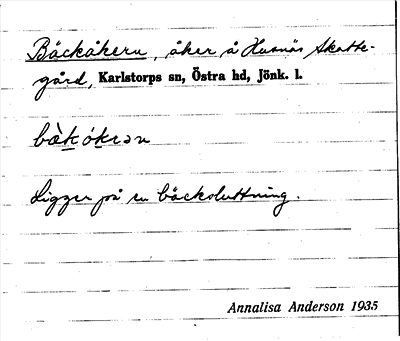 Bäckåkern, åker å Husnäs Skatte-
gård, Karlstorps sn, Östra hd, Jönk. l.
bæ̀kòkrən
Ligger på en bäcksluttning.
Annalisa Anderson 1935